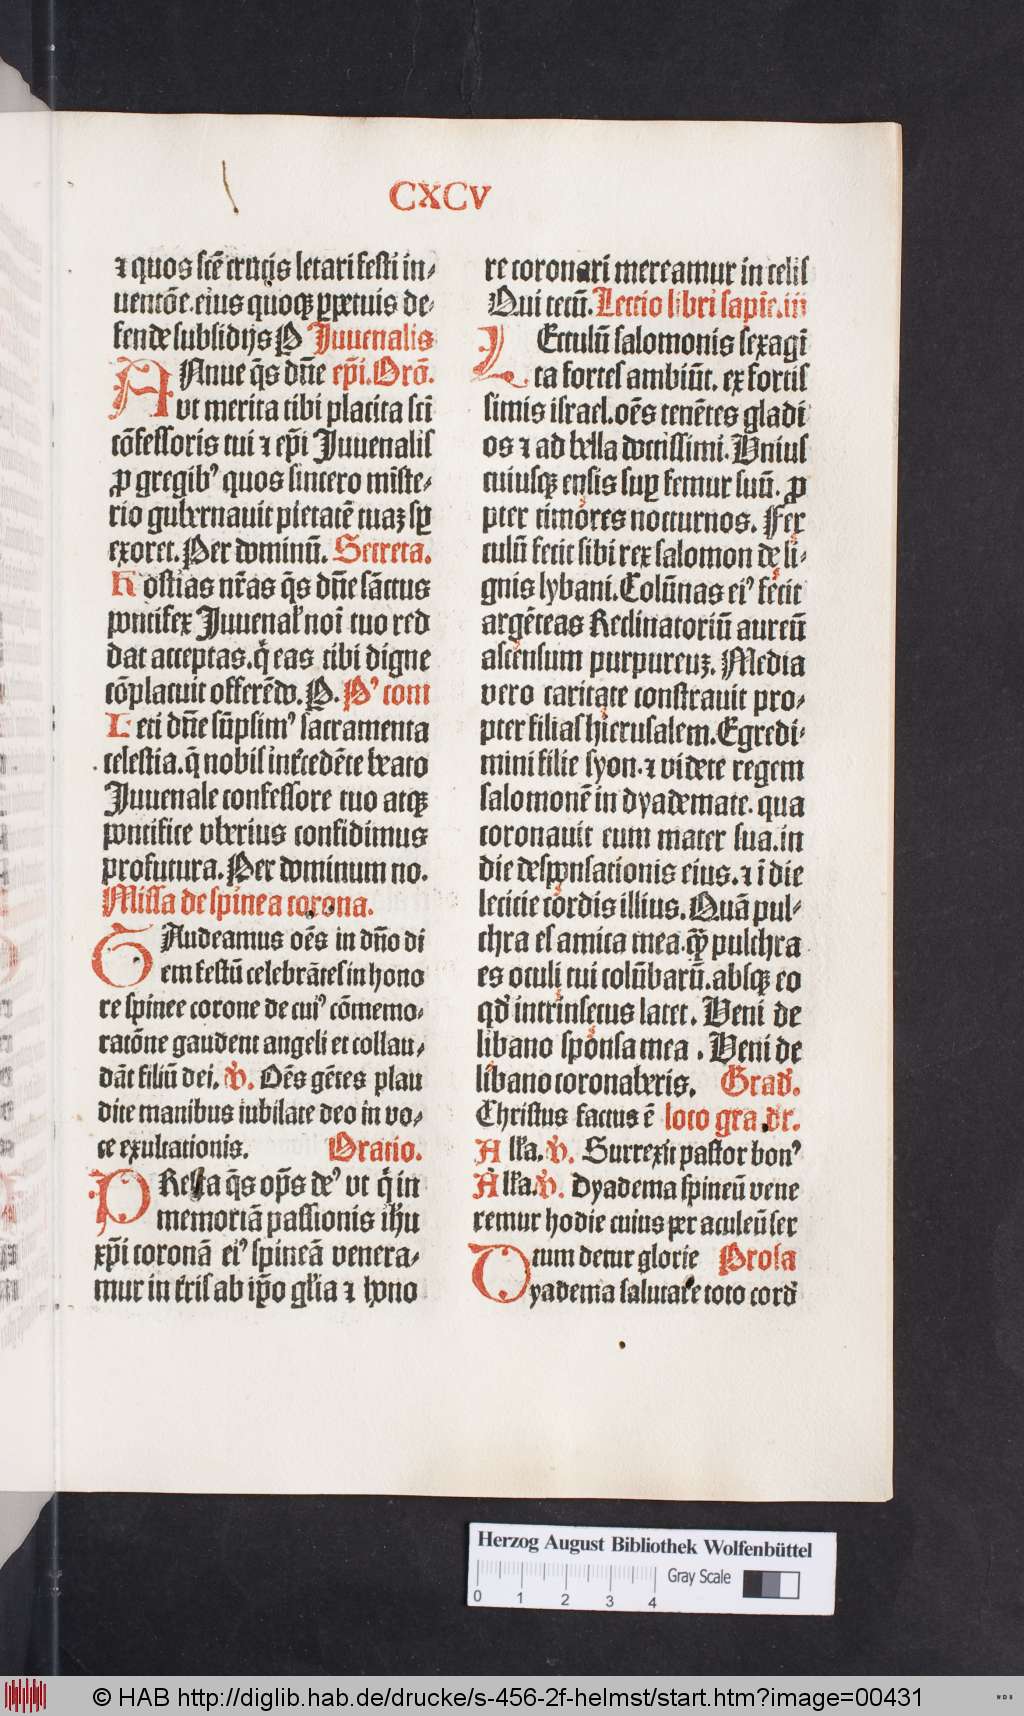 CXCV
⁊ quos scē crucis letari festi in⸗
uentōe. eius quoqꝫ ꝑpetuis de⸗
fende subsidijs P Juuenalis
ANnue q̄s dn̄e ep̄i. Orō.
vt merita tibi placita scī
cōfessoris tui ⁊ ep̄i Juuenalis
ꝓ gregibꝰ quos sincero miste⸗
rio gubernauit pietatē tuaꝫ sꝑ
exoret. Per dominū. Secreta.
Hostias nr̄as q̄s dn̄e sāctus
pontifex Juuenal' noī tuo red
dat acceptas. q̄ eas tibi digne
cōplacuit offerēdo. P. Pꝰ com
Leti dn̄e sūpsimꝰ sacramenta
celestia. q̄ nobis int̄cedēte beato
Juuenale confessore tuo atqꝫ
pontifice vberius confidimus
profutura. Per dominum no.
Missa de spinea corona.
GAudeamus oēs in dn̄o di
em festū celebrātes in hono
re spinee corone de cuiꝰ cōmemo⸗
ratōne gaudent angeli et collau⸗
dāt filiū dei. V. Oēs gētes plau
dite manibus iubilate deo in vo⸗
ce exultationis. Oratio.
PResta q̄s op̄s deꝰ vt q̄ in
memoriā passionis ihū
xp̄i coronā eiꝰ spineā venera⸗
mur in tr̄is ab ip̄o gl'ia ⁊ hono
re coronari mereamur in celis
Qui tecū. Lectio libri sapiē. iii
LEctulū salomonis sexagī
ta fortes ambiūt. ex fortis
simis israel. oēs tenētes gladi
os ⁊ ad bella doctissimi. Vnius
cuiusqꝫ ensis suꝑ femur suū. ꝓ
pter timores nocturnos. Fer
culū fecit sibi rex salomon de li⸗
gnis lybani. Colūnas eiꝰ fecit
argēteas Reclinatoriū aureū
ascensum purpureuꝫ. Media
vero caritate constrauit pro⸗
pter filias hierusalem. Egredi⸗
mini filie syon. ⁊ videte regem
salomonē in dyademate. qua
coronauit eum mater sua. in
die desponsationis eius. ⁊ ī die
leticie cordis illius. Quā pul⸗
chra es amica mea. qꝫ pulchra
es oculi tui colūbarū. absqꝫ eo
qd' intrinsecus latet. Veni de
libano sponsa mea. Veni de
libano coronaberis. Grad'.
Christus factus ē loco gra. dr.
All'a. V. Surrexit pastor bonꝰ
All'a. V. Dyadema spineū vene
remur hodie cuius per aculeū ser
tum detur glorie Prosa
Dyadema salutare toto cord'
Herzog August Bibliothek Wolfenbüttel
Gray Scale
0 1 2 3 4
© HAB http://diglib.hab.de/drucke/s-456-2f-helmst/start.htm?image=00431